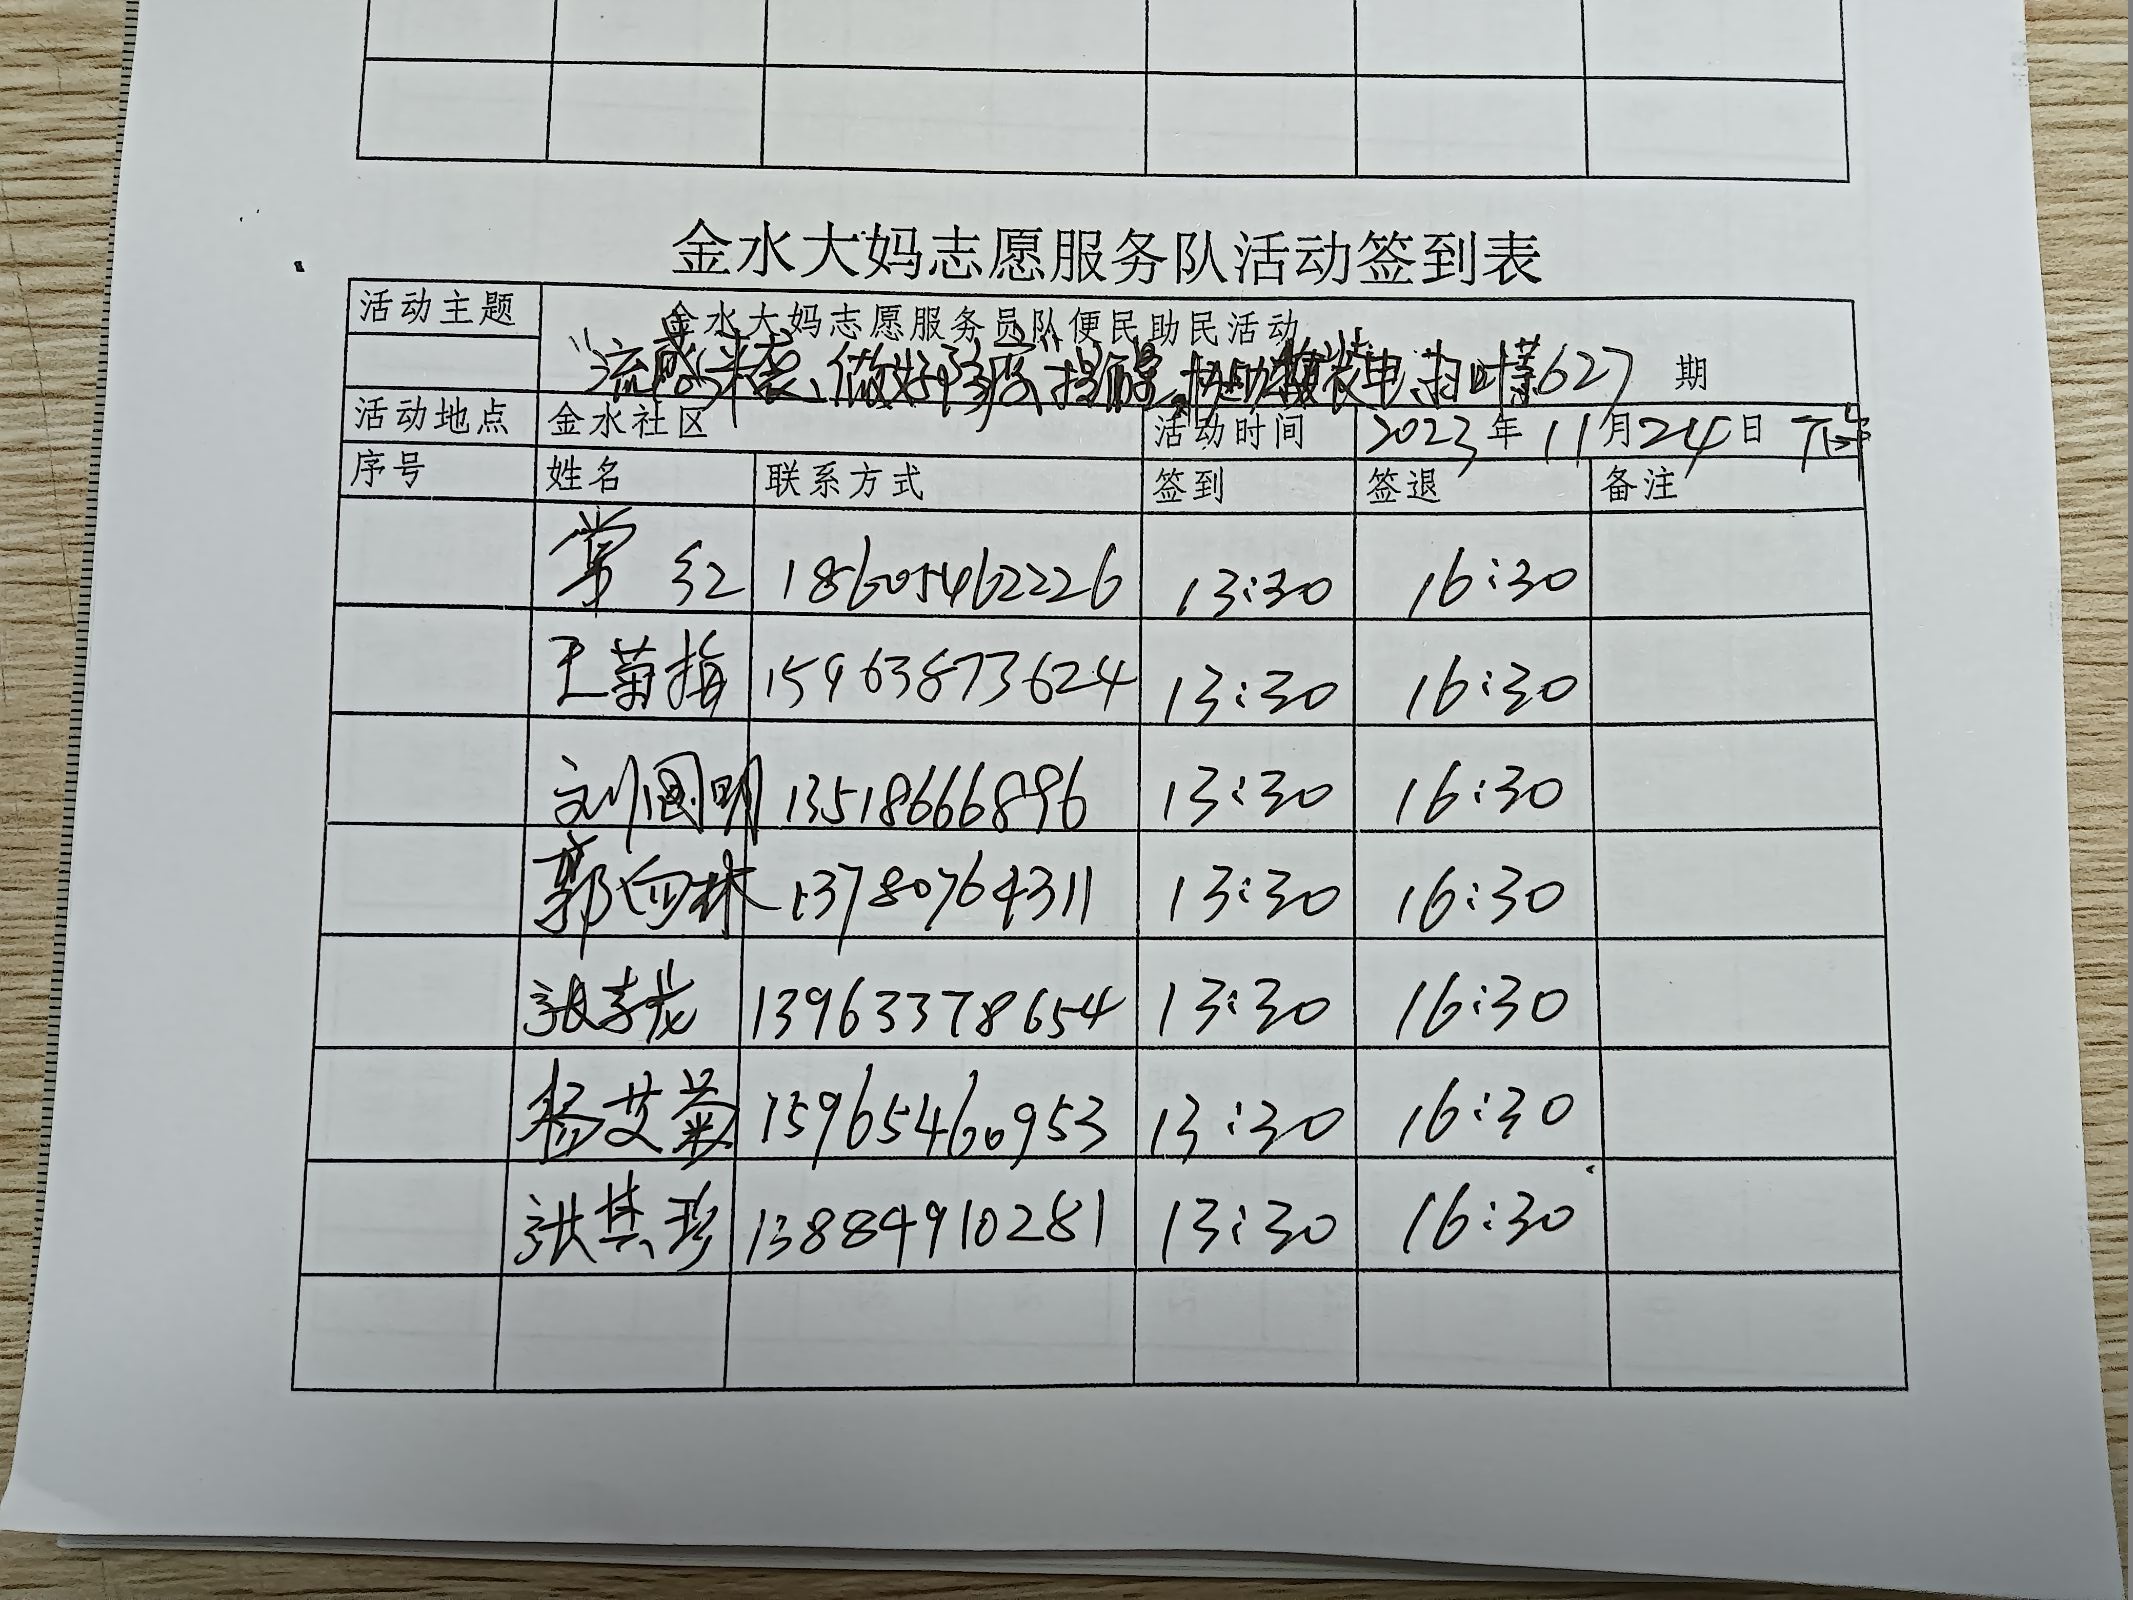 金水大妈志愿服务队活动签到表
活动主题 金水大妈志愿服务员队便民助民活动
"流感来袭、做好防疫"提醒 协助 627 期
活动地点 金水社区 活动时间 2023年11月24日 下午
序号 姓名 联系方式 签到 签退 备注
常红 18605462226 13:30 16:30
王菊梅 15963873624 13:30 16:30
刘国明 13518666896 13:30 16:30
郭向林 13780764311 13:30 16:30
张孝龙 13963378654 13:30 16:30
杨艾菊 15965460953 13:30 16:30
张其珍 13884910281 13:30 16:30